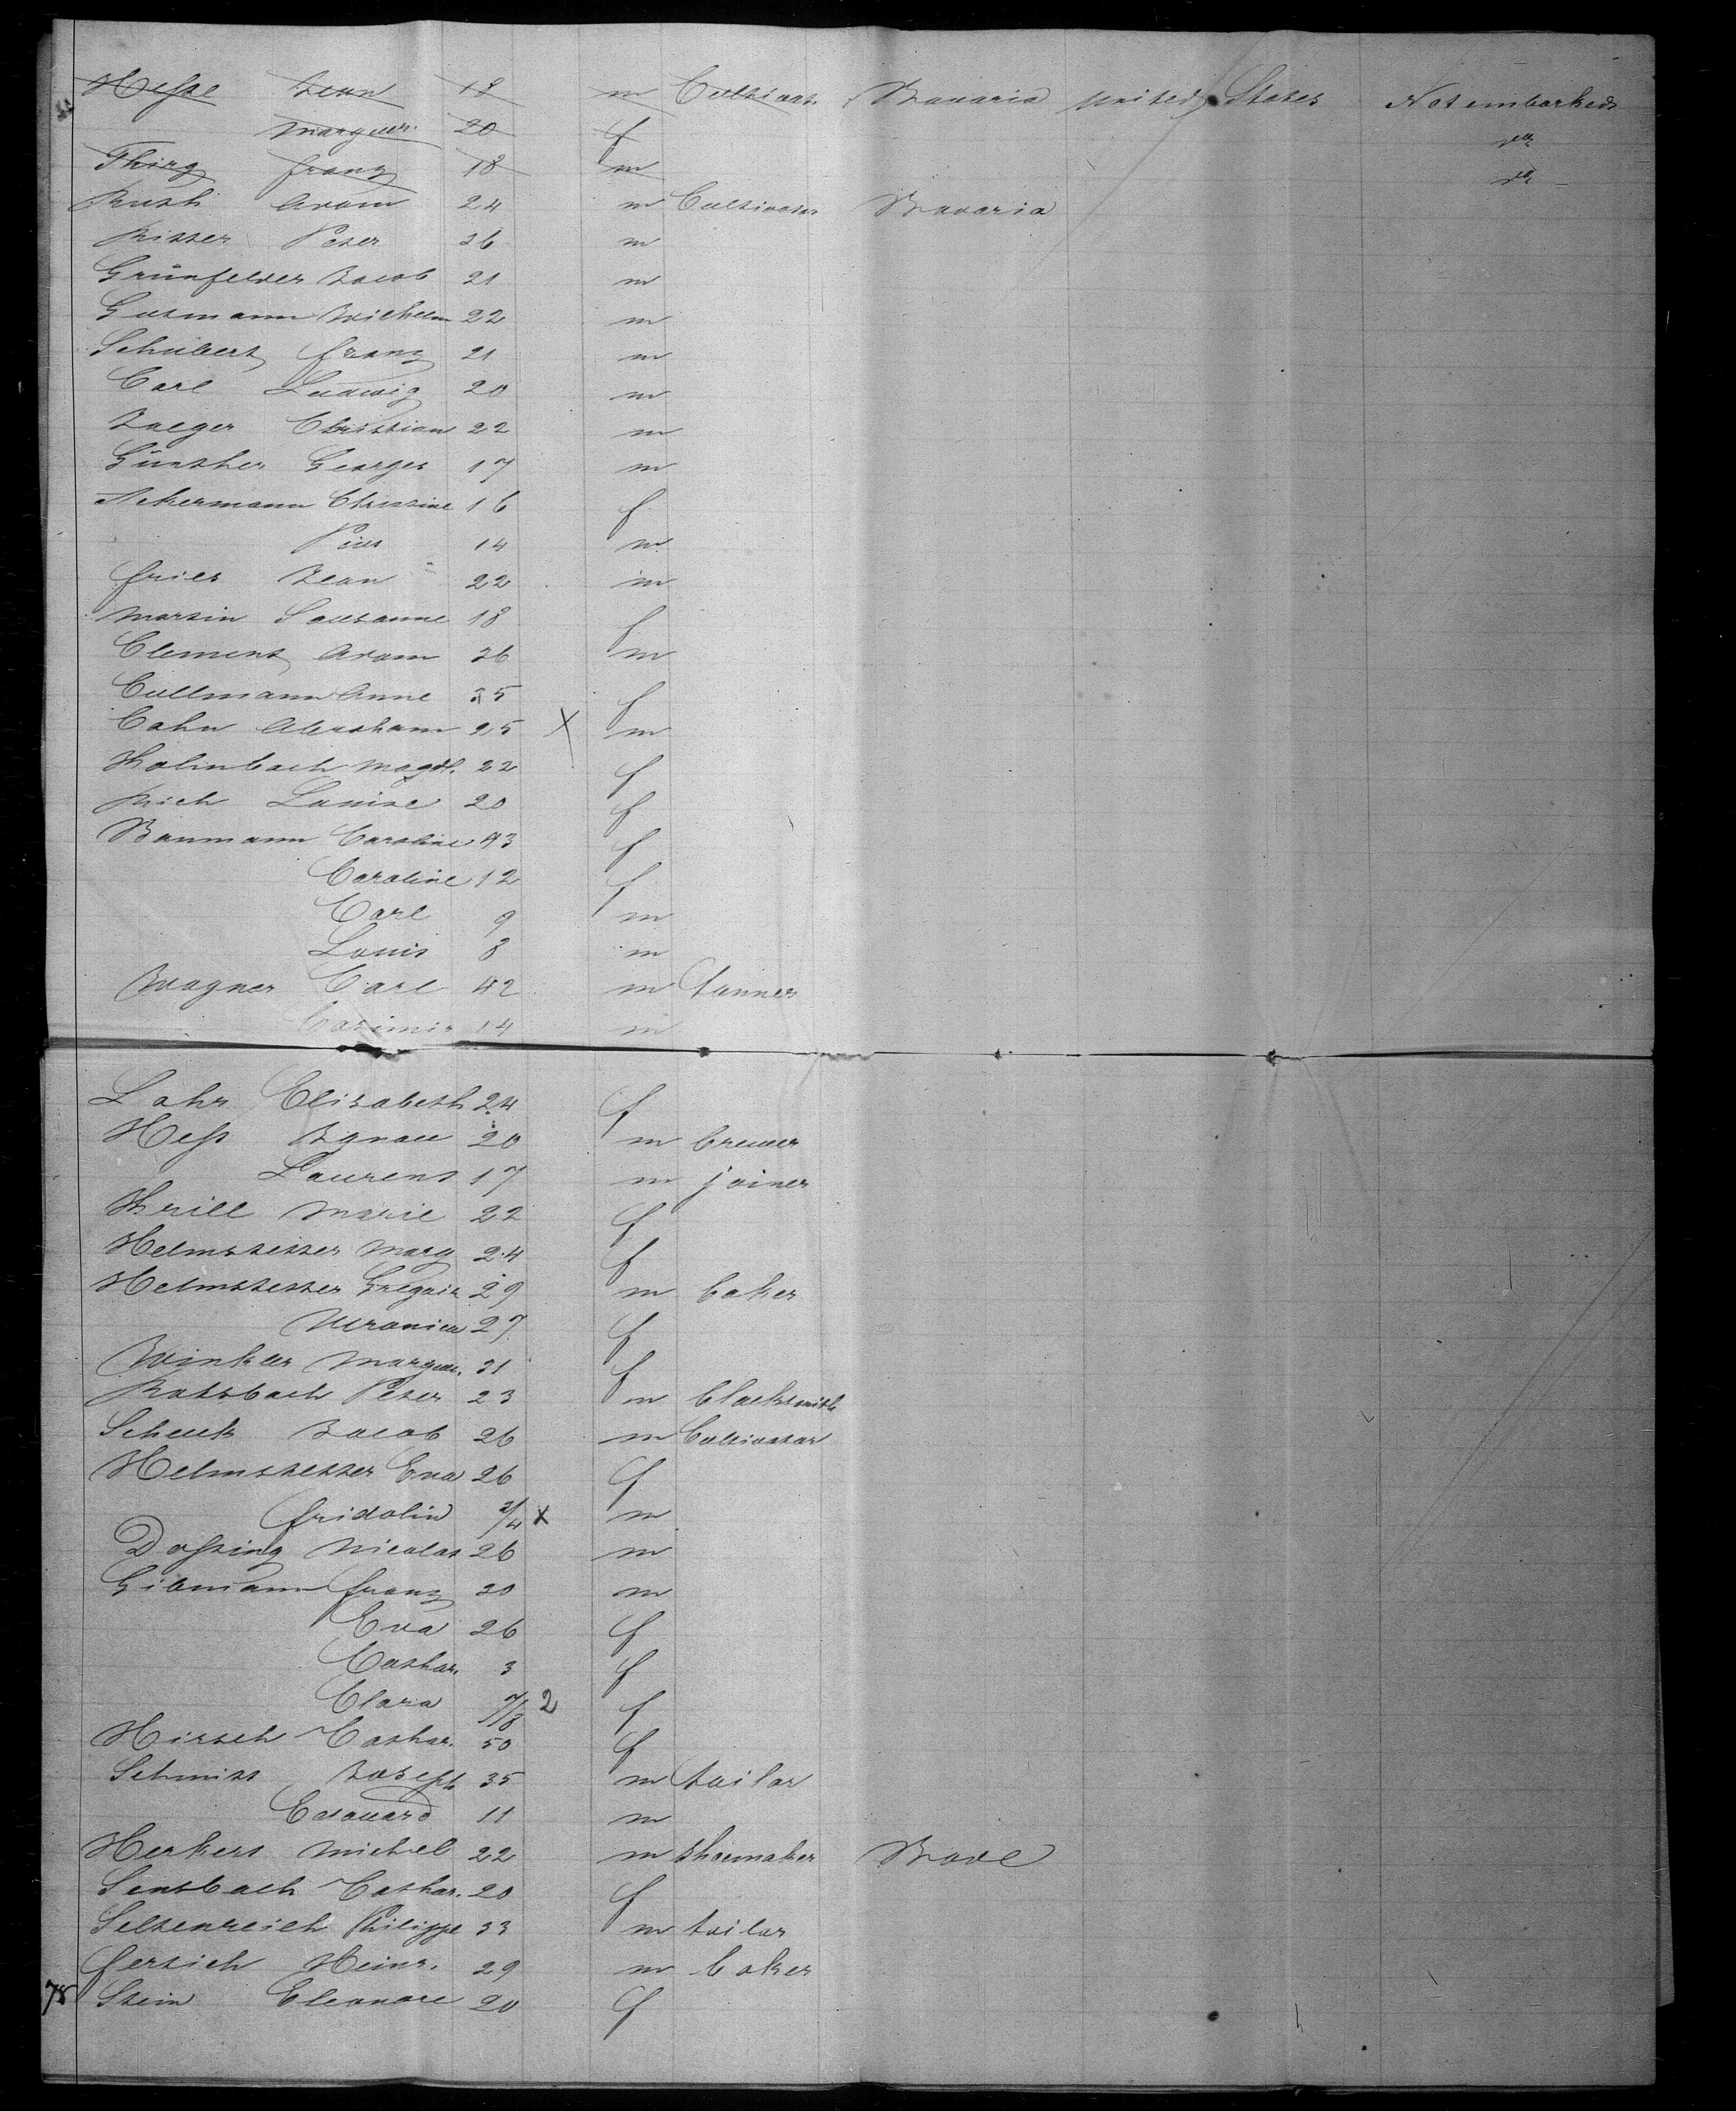 Hesse Jean 18 m Cultivator Bavaria united States Not embarked
Marguer. 20 f do
Thirg franz 18 m do
Rush Adam 24 m Cultivator Bavaria
Risser Peter 26 m
Grünfelder Jacob 21 m
Gutmann Wilhelm 22 m
Schubert franz 21 m
Carl Ludwig 20 m
Jaeger Christian 22 m
Günther Georges 17 m
Ackermann Christine 16 f
Pius 14 m
fries Jean 22 m
Martin Sousanne 18 f
Clement Adam 26 m
Cullmann Anne 25 f
Cahn Abraham 25 X m
Kolmbach Magdl. 22 f
Rich Louise 20 f
Baumann Caroline 43 f
Caroline 12 f
Carl 9 m
Louis 8 m
Wagner Carl 42 m tanner
Casimir 14 m
Lahr Elisabeth 24 f
Hess Ignace 20 m brewer
Laurent 17 m joiner
Krill Marie 22 f
Helmstetter Marg 24 f
Helmstetter Gregoir 29 m baker
Veronica 27 f
Winkler Marguer. 21 f
Rotsbach Peter 23 m blacksmith
Schenk Jacob 26 m Cultivator
Helmstetter Eva 26 f
fridolin 3/4 x m
Dossing Nicolas 26 m
Gilmann franz 30 m
Eva 26 f
Cathar. 3 f
Clara 7/8 2 f
Hirsch Cathar. 50 f
Schmitt Joseph 35 m tailor
Edouard 11 m
Herkert Michel 22 m shoemaker Bade
Sensbach Cathar. 20 f
Seltenreich Philippe 33 m tailor
fertich Heinr. 29 m baker
78 Stein Eleonore 20 f